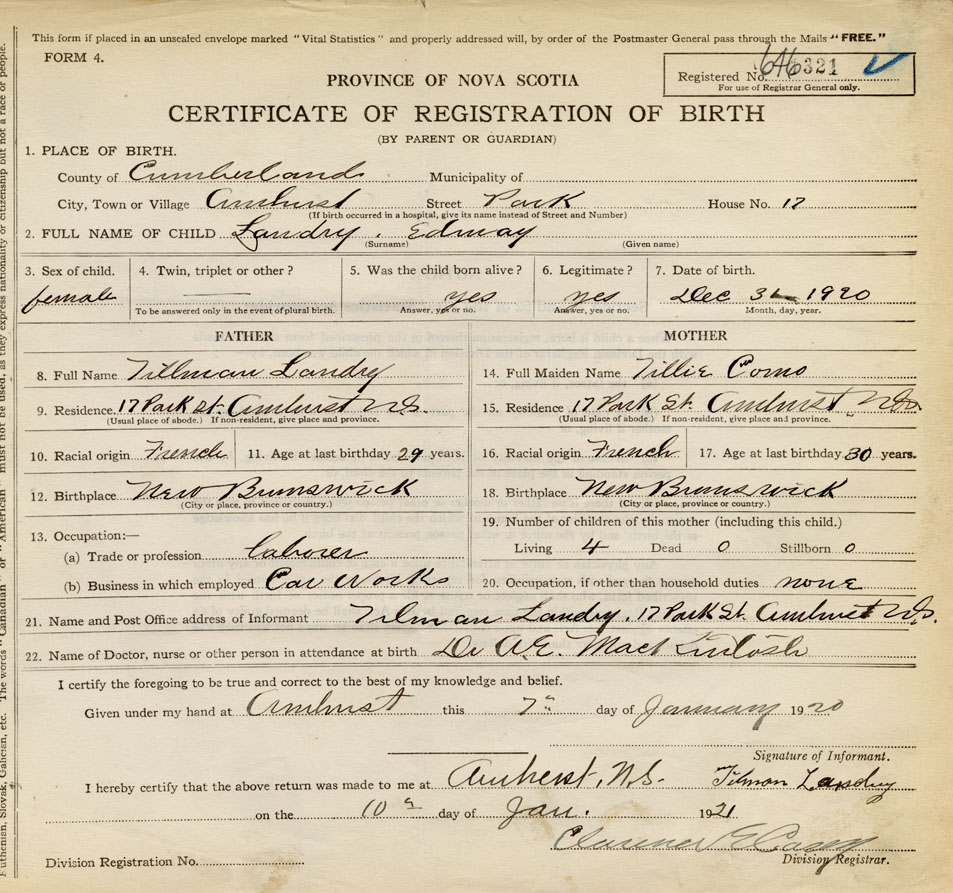 This form if placed in an unsealed envelope marked "Vital Statistics" and properly addressed will, by order of the Postmaster General pass through the Mails "FREE."
FORM 4.
Registered No. 646321
For use of Registrar General only.
PROVINCE OF NOVA SCOTIA
CERTIFICATE OF REGISTRATION OF BIRTH
(BY PARENT OR GUARDIAN)
1. PLACE OF BIRTH.
County of Cumberland Municipality of
City, Town or Village Amhurst Street Park House No. 17
(If birth occurred in a hospital, give its name instead of Street and Number)
2. FULL NAME OF CHILD Landry . Edmay
(Surname) (Given name)
3. Sex of child. 4. Twin, triplet or other? 5. Was the child born alive? 6. Legitimate? 7. Date of birth.
female yes yes Dec 31 1920
To be answered only in the event of plural birth. Answer, yes or no. Answer, yes or no. Month, day, year.
FATHER MOTHER
8. Full Name Tillman Landry 14. Full Maiden Name Tillie Como
9. Residence 17 Park St. Amhurst N.S. 15. Residence 17 Park St. Amhurst N.S.
(Usual place of abode.) If non-resident, give place and province. (Usual place of abode.) If non-resident, give place and province.
10. Racial origin French 11. Age at last birthday 29 years. 16. Racial origin French 17. Age at last birthday 30 years.
12. Birthplace New Brunswick 18. Birthplace New Brunswick
(City or place, province or country.) (City or place, province or country.)
13. Occupation:— 19. Number of children of this mother (including this child.)
(a) Trade or profession laborer Living 4 Dead 0 Stillborn 0
(b) Business in which employed Car Works 20. Occupation, if other than household duties none
21. Name and Post Office address of Informant Tilman Landry, 17 Park St. Amhurst N.S.
22. Name of Doctor, nurse or other person in attendance at birth Dr A.E. MacKintosh
I certify the foregoing to be true and correct to the best of my knowledge and belief.
Given under my hand at Amhurst this 7th day of January 1920
Signature of Informant.
I hereby certify that the above return was made to me at Amherst, N.S. Tilmon Landry
on the 10th day of Jan. 1921
Clarence E Casey
Division Registration No. Division Registrar.
The words "Canadian" or "American" must not be used, as they express nationality or citizenship but not a race or people.